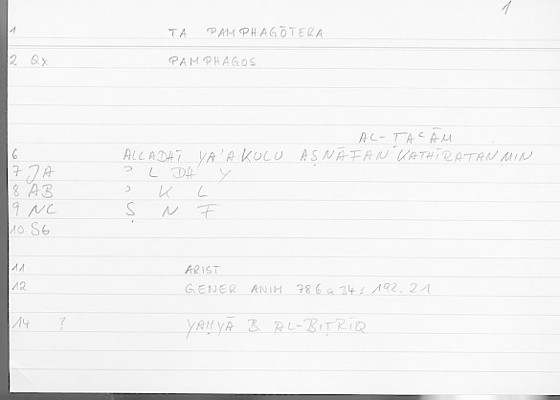 1
1 TA PAMPHAGŌTERA
2 Qx PAMPHAGOS
AL-ṬAʿĀM
6 ALLADĪ YAʾAKULU AṢNĀFAN KATHĪRATAN MIN
7 JA ʾ L DH Y
8 AB ʾ K L
9 NC Ṣ N F
10 S6
11 ARIST
12 GENER ANIM 786 a 34: 192.21
14 ? YAḤYĀ B AL-BIṬRĪQ